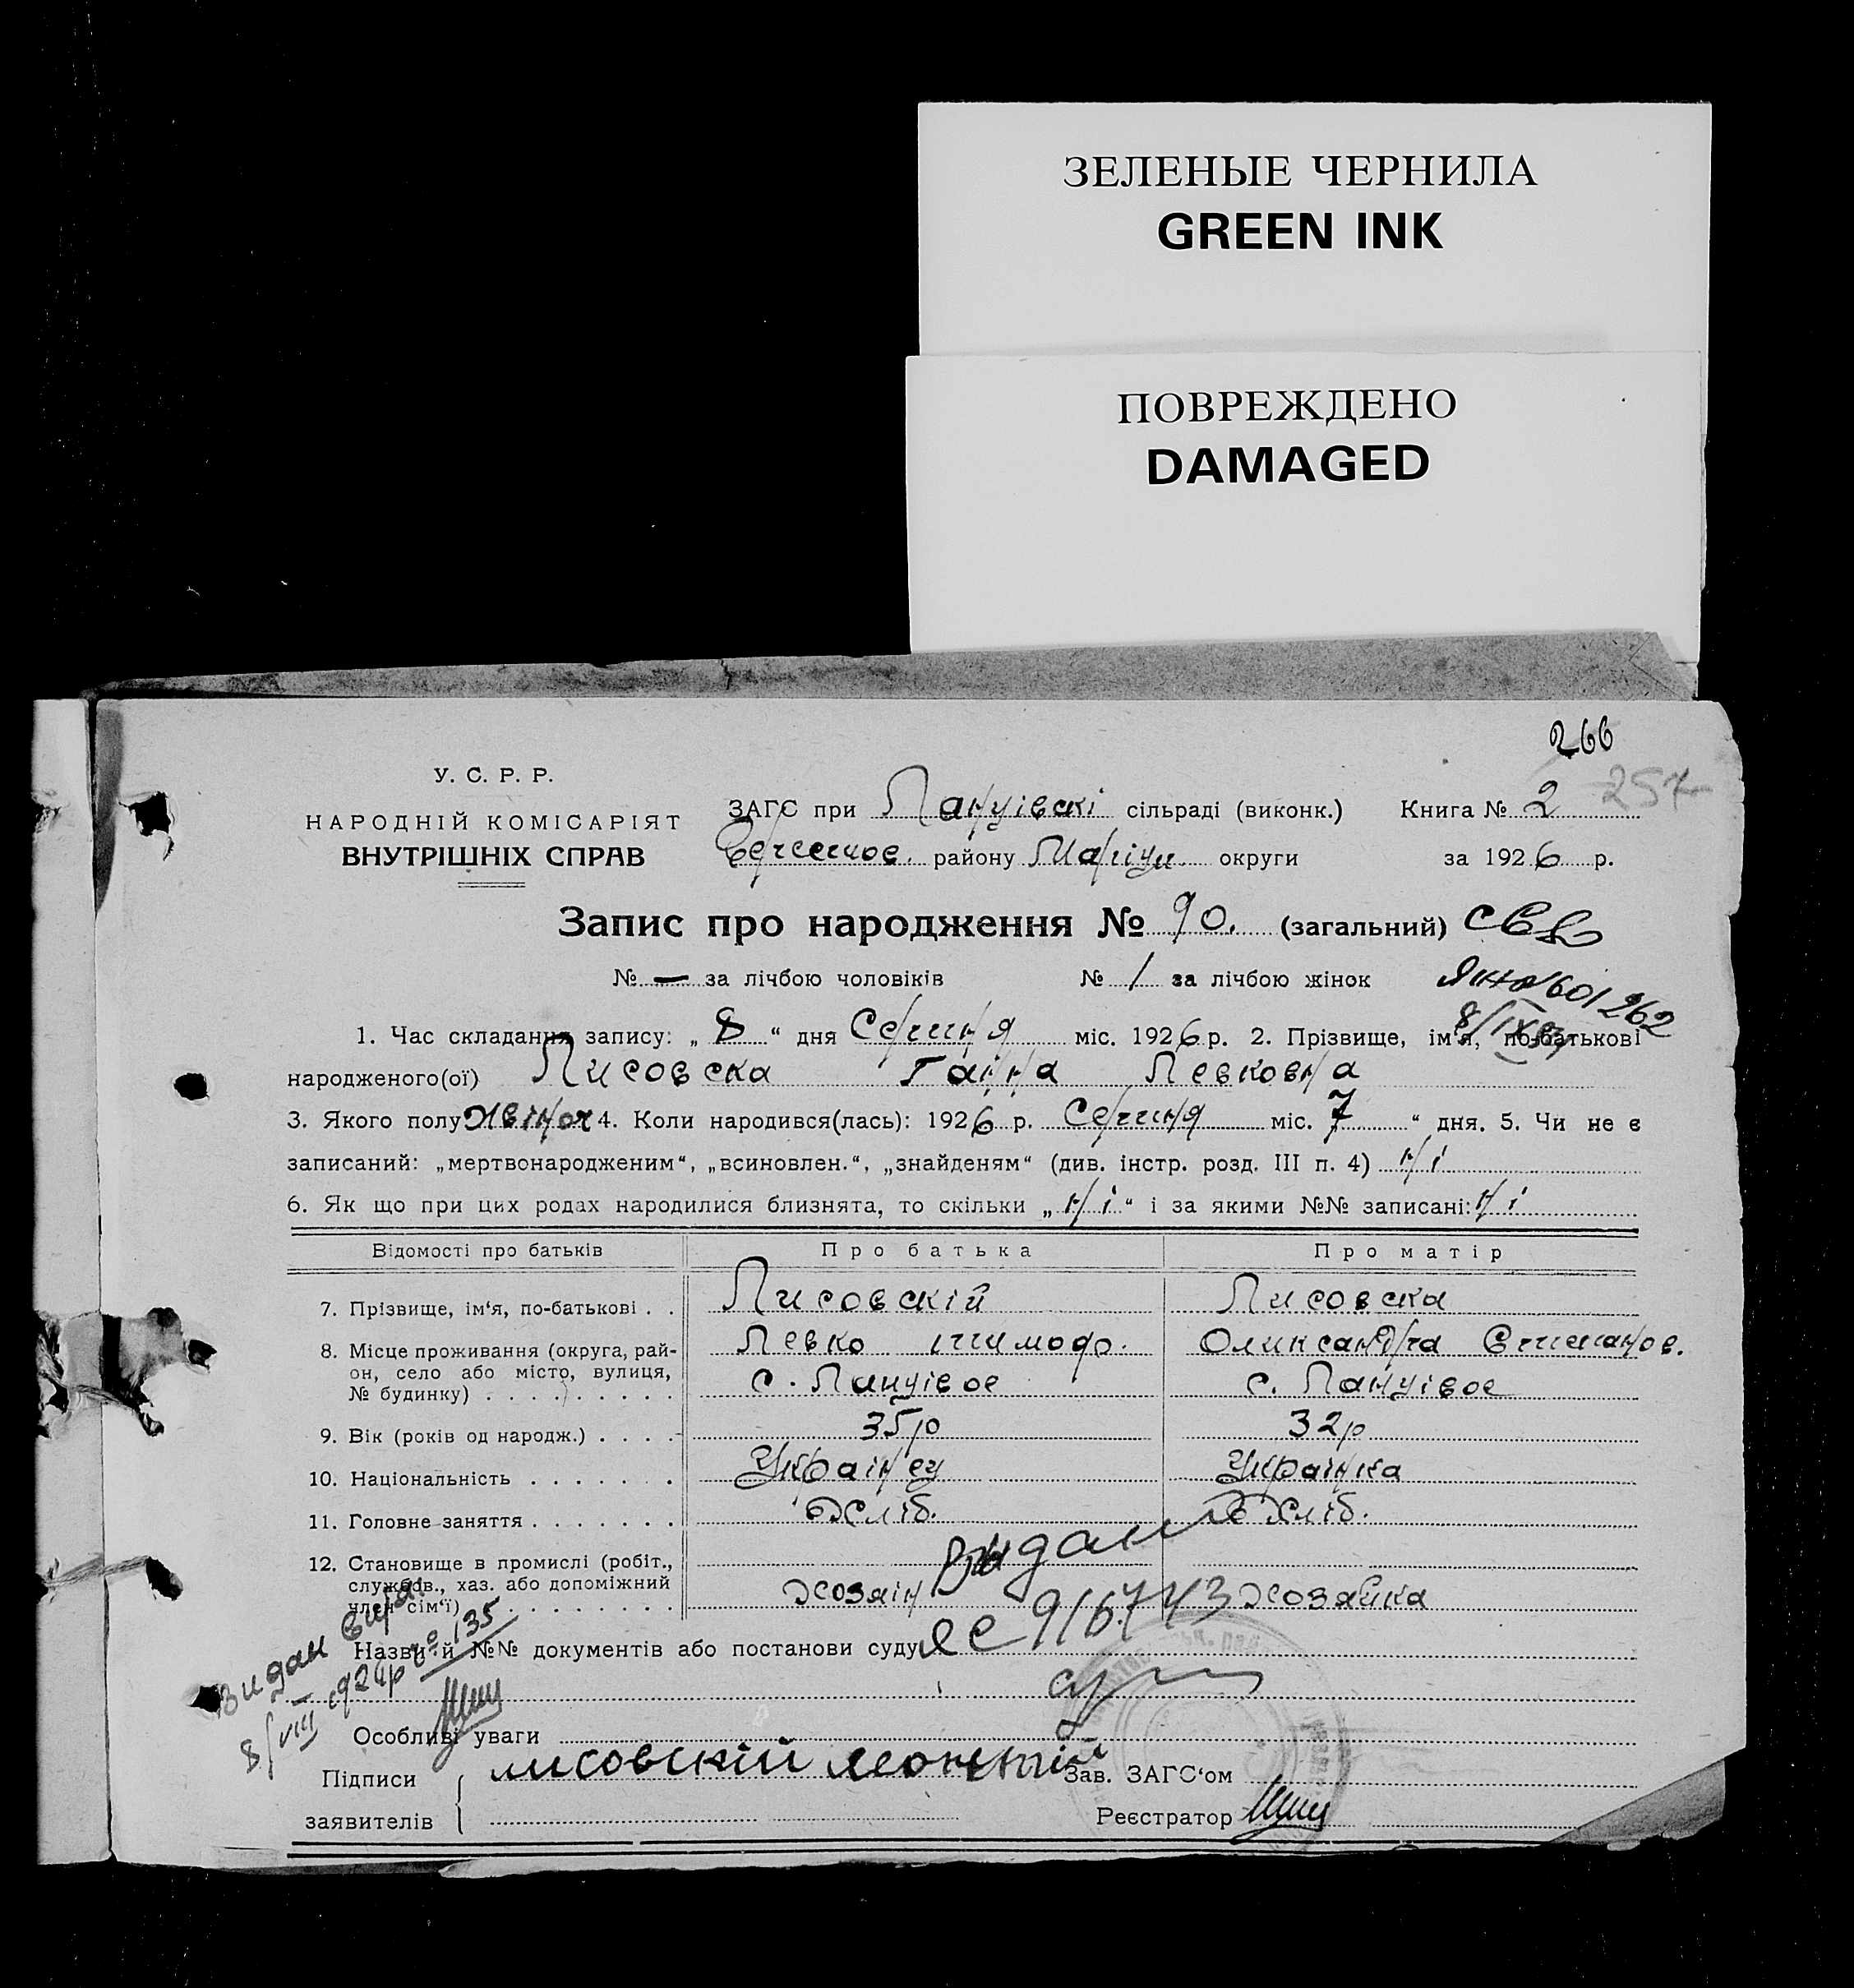 ЗЕЛЕНЫЕ ЧЕРНИЛА
GREEN INK
ПОВРЕЖДЕНО
DAMAGED
266
257
У. С. Р. Р.
НАРОДНІЙ КОМІСАРІЯТ
ВНУТРІШНІХ СПРАВ
ЗАГС при сільраді (виконк.) Книга № 2
району Маріуп. округи за 1926 р.
Запис про народження № 90. (загальний)
№ — за лічбою чоловіків № 1 за лічбою жінок
1. Час складання запису: „ 8 “ дня Серпня міс. 1926 р. 2. Прізвище, ім'я, по-батькові
народженого(ої) Лисовска Ганна Левковна
3. Якого полу 4. Коли народився(лась): 1926 р. Серпня міс. 7 “ дня. 5. Чи не є
записаний: „мертвонародженим“, „всиновлен.“, „знайденям“ (див. інстр. розд. III п. 4) Ні
6. Як що при цих родах народилися близнята, то скільки „ Ні “ і за якими №№ записані: Ні
Відомості про батьків Про батька Про матір
7. Прізвище, ім'я, по-батькові . . Лисовскій Лисовска
8. Місце проживання (округа, рай-
он, село або місто, вулиця,
№ будинку) . . . . . . . . .
Левко
с. с.
9. Вік (років од народж.) . . . . 35р 32р
10. Національність . . . . . . . Українец Українка
11. Головне заняття . . . . . . . Хліб. Хліб.
12. Становище в промислі (робіт.,
службов., хаз. або допоміжний
член сім'ї) . . . . . . . . .
Хозяін Хозайка
Назви й №№ документів або постанови суду 916743
Видан
№ 135
Особливі уваги
Підписи
заявителів
лисовскій леонтій
Зав. ЗАГС'ом
Реєстратор